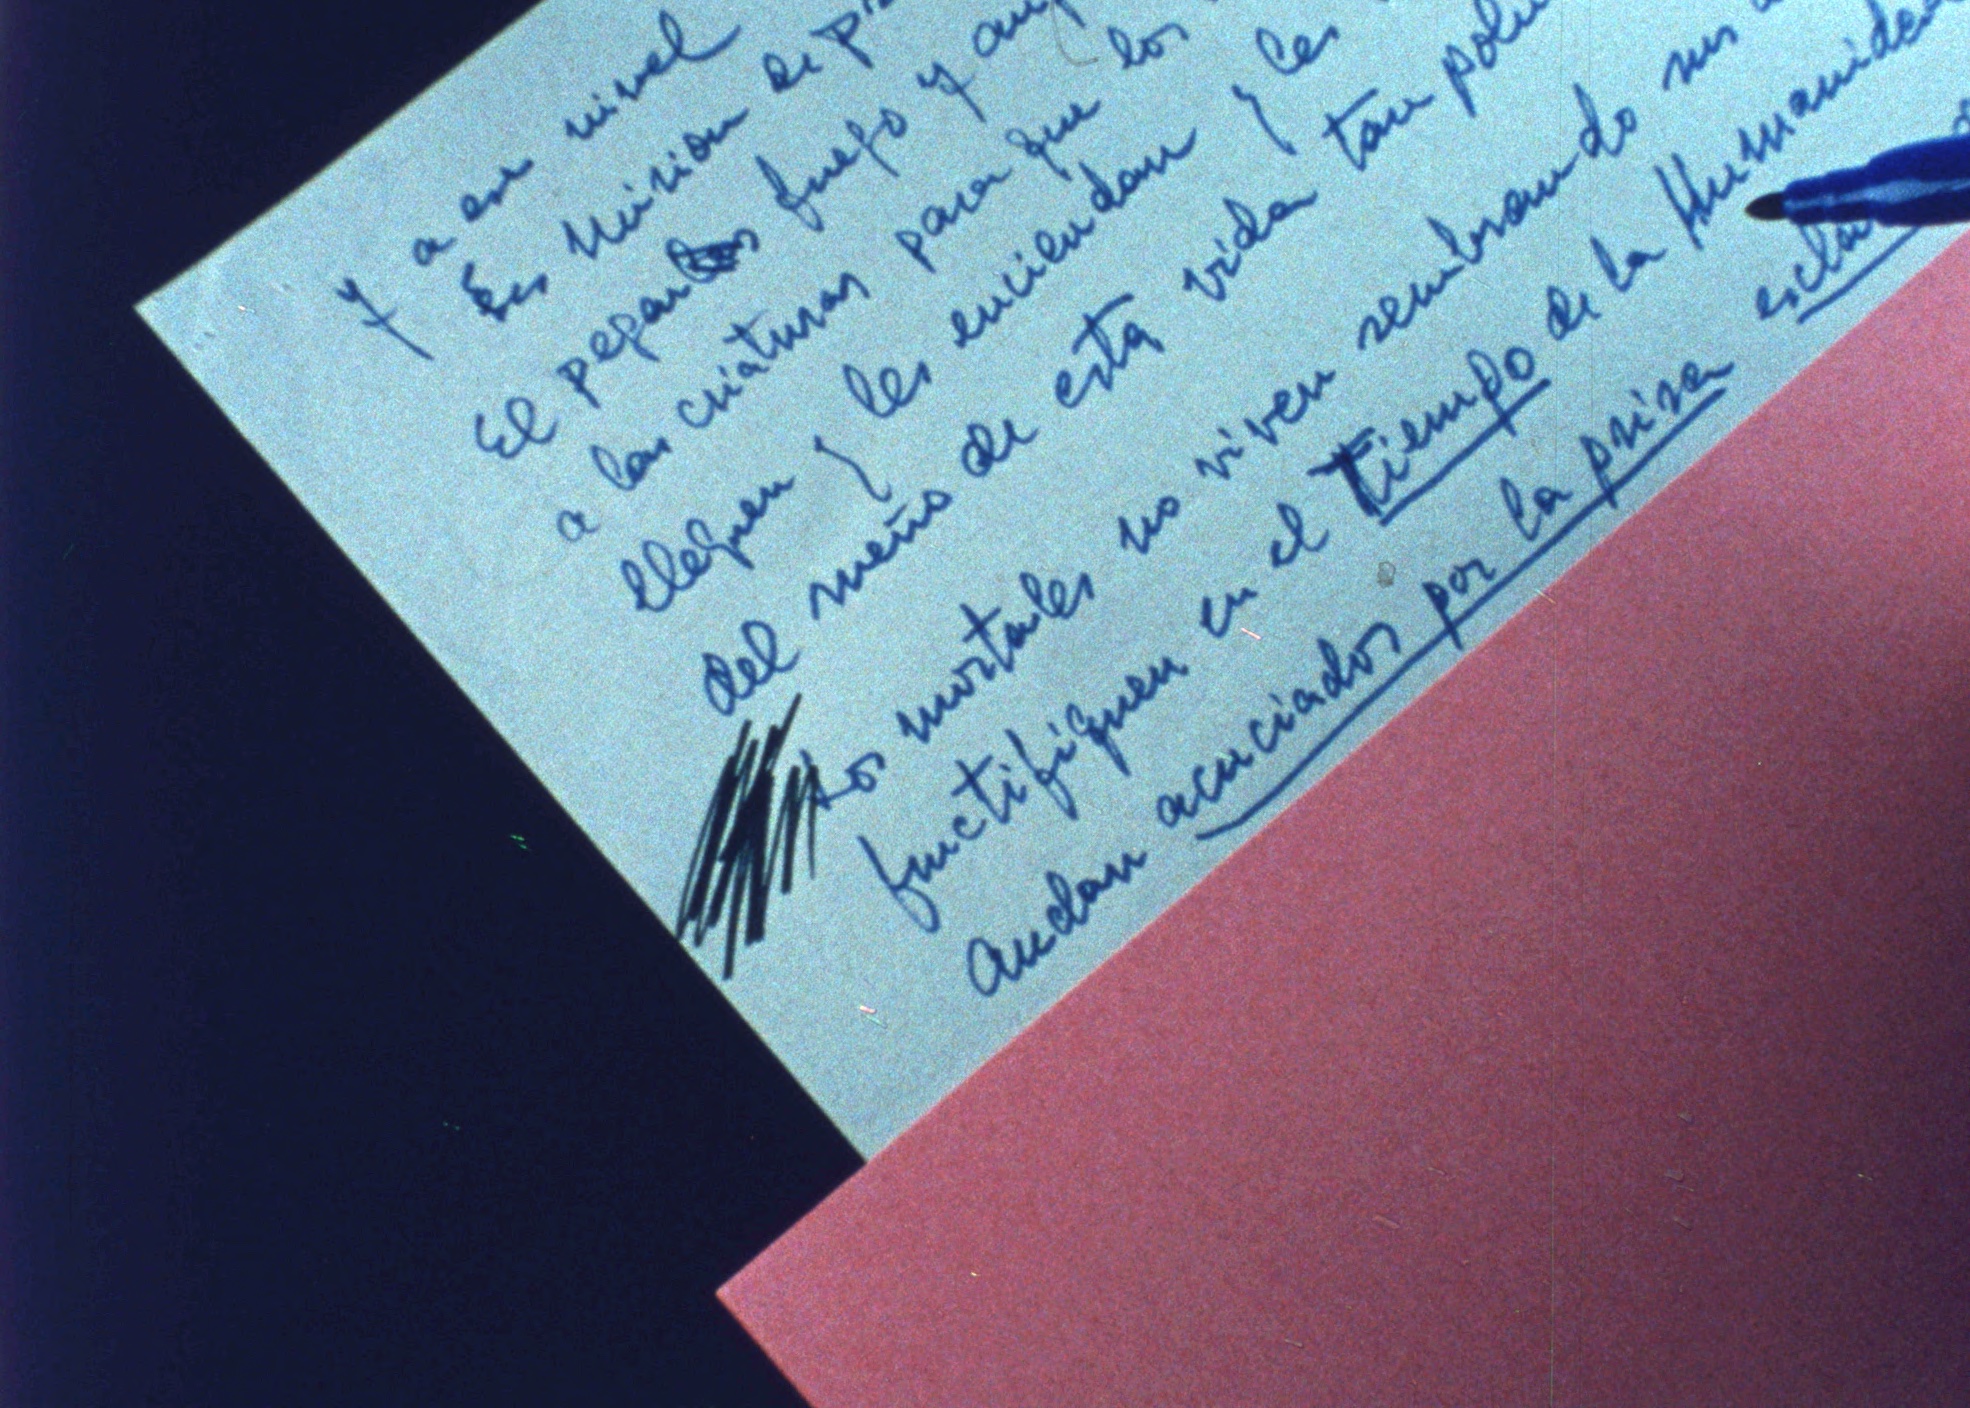 y a ese nivel
Es misión de
El pegarlos fuego y
a las criaturas para que los
lleguen y les enciendan y les
del sueño de esta vida tan
Los mortales no viven sembrando sus
fructifiquen en el tiempo de la Humanidad
andan acuciados por la prisa